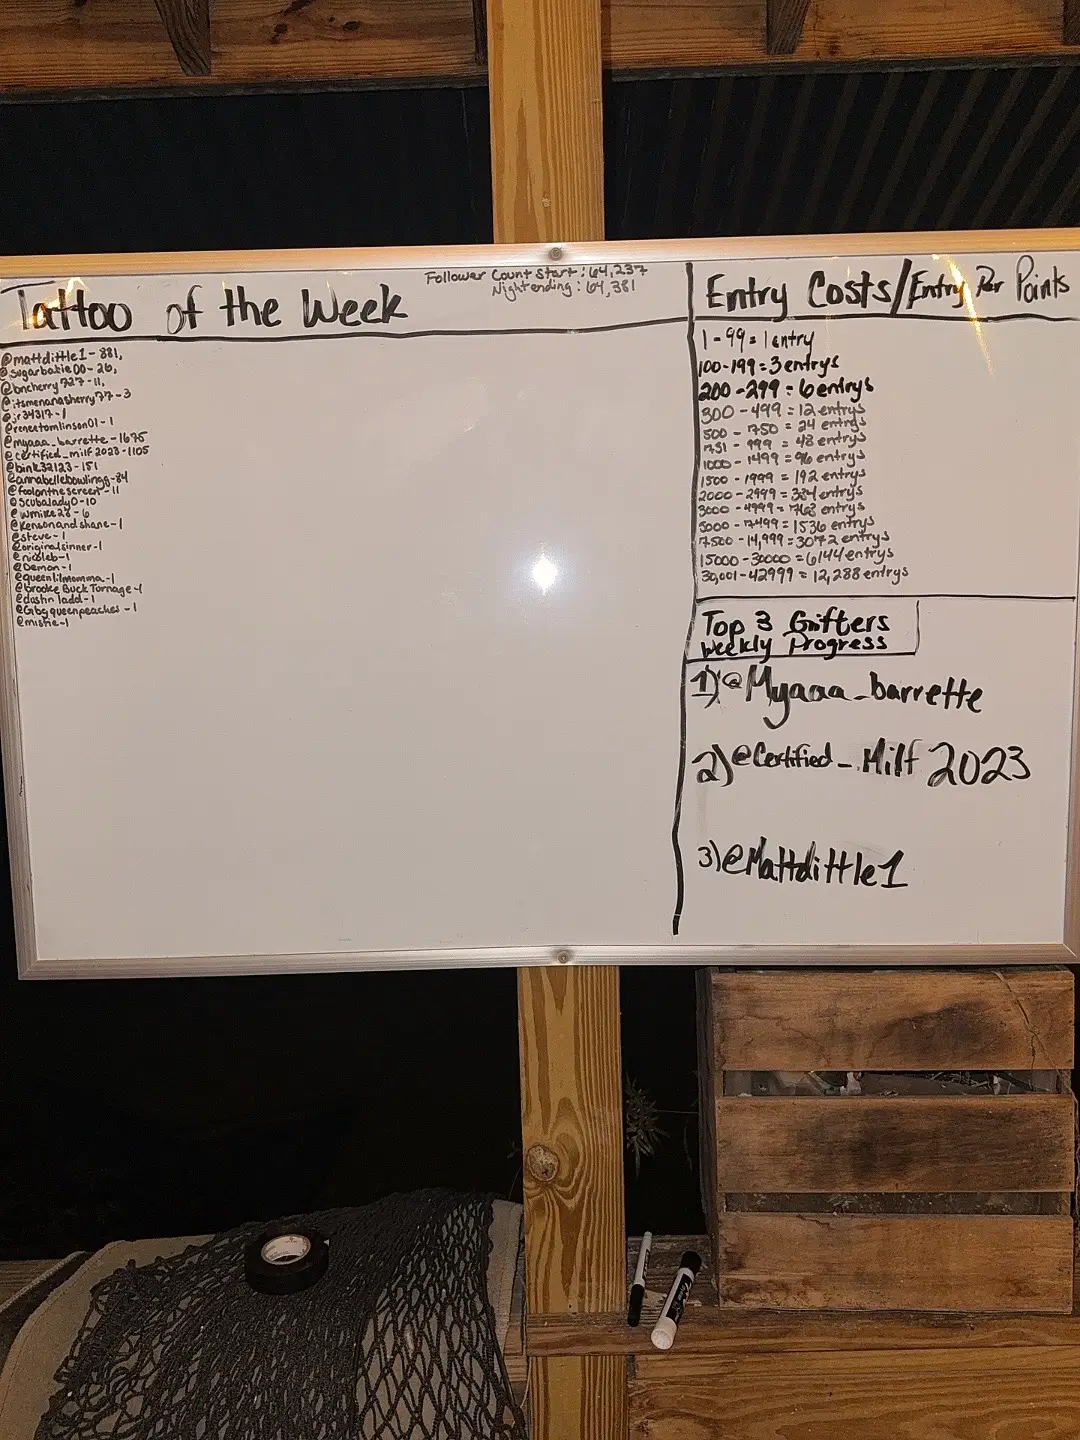 Follower Count Start: 64,237
Nightending: 64,381
Tattoo of the Week
@mattdittle1 - 881,
@sugarbabie00 - 26,
@bncherry727 - 11,
@itsmenanasherry77 - 3
@jr34317 - 1
@reneetomlinson01 - 1
@myaaa_barrette - 1675
@certified_milf2023 - 1105
@bink32123 - 151
@annabellebowlingg - 84
@foolonthescreen - 11
@Scubalady0 - 10
@wmike28 - 6
@Kensonandshane - 1
@steve - 1
@originalsinner - 1
@nicoleb - 1
@Demon - 1
@queenlilmomma - 1
@brooke Buck Turnage - 1
@dustin ladd - 1
@Gbgqueenpeaches - 1
@mistie - 1
Entry Costs/Entry Per Points
1 - 99 = 1 entry
100 - 199 = 3 entrys
200 - 299 = 6 entrys
300 - 499 = 12 entrys
500 - 750 = 24 entrys
751 - 999 = 48 entrys
1000 - 1499 = 96 entrys
1500 - 1999 = 192 entrys
2000 - 2999 = 384 entrys
3000 - 4999 = 768 entrys
5000 - 7499 = 1536 entrys
7500 - 14,999 = 3072 entrys
15000 - 30000 = 6144 entrys
30,001 - 42999 = 12,288 entrys
Top 3 Gifters
Weekly Progress
1) @Myaaa_barrette
2) @Certified_Milf 2023
3) @Mattdittle1